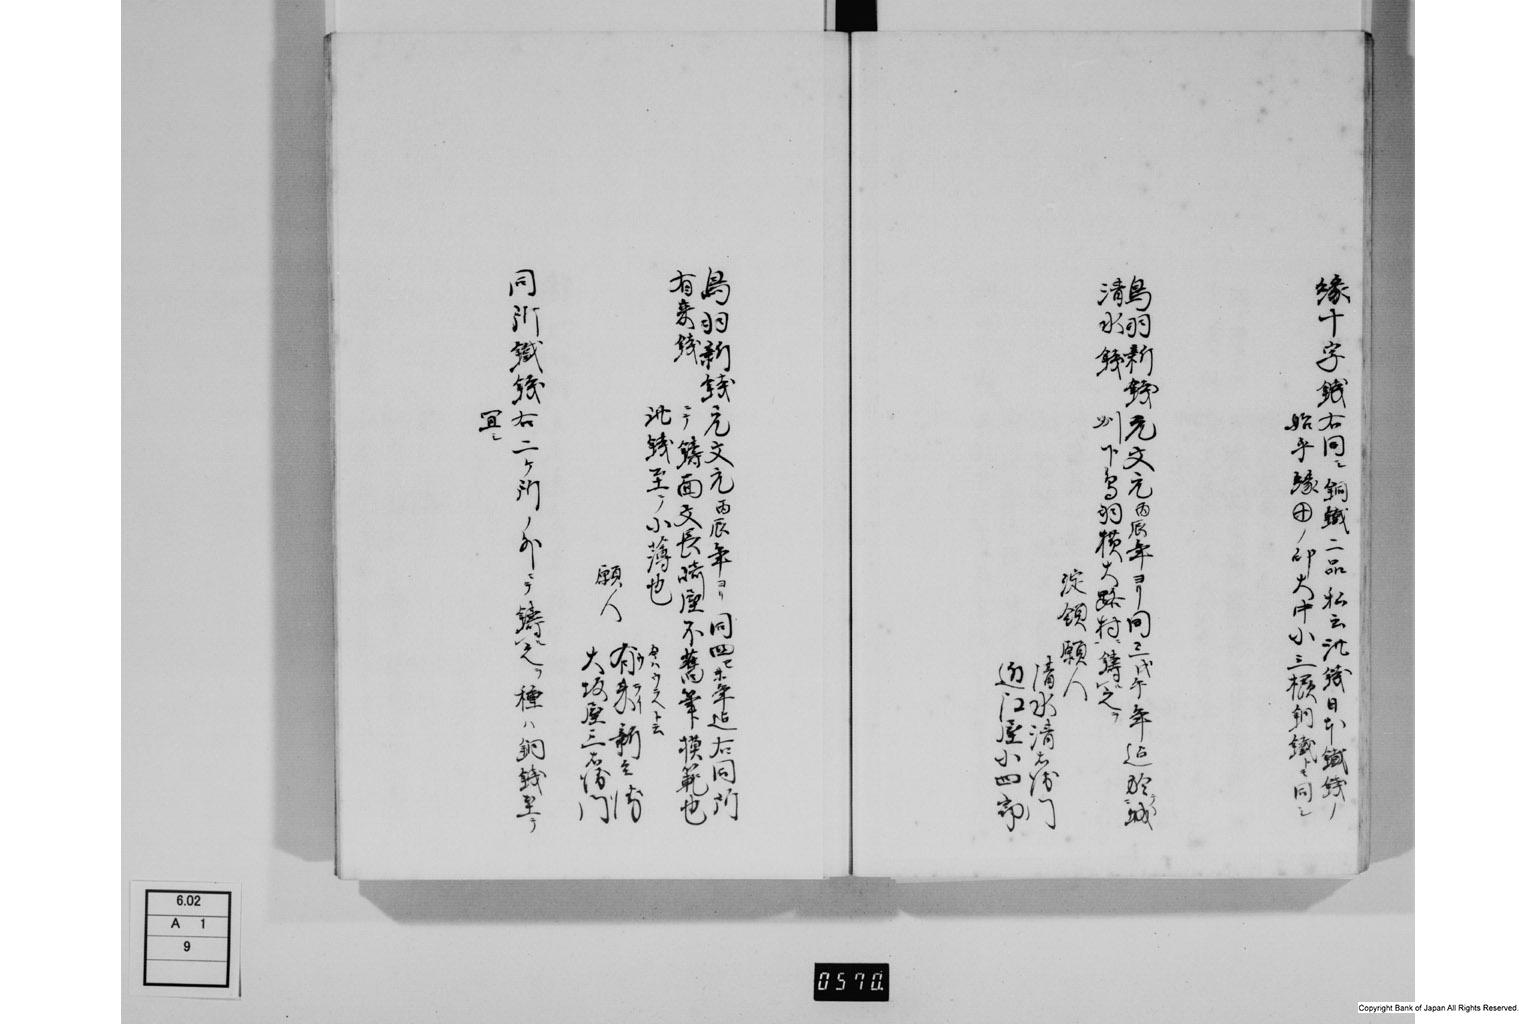 縁十字銭右同シ銅鐵二品私云此銭日本鐵銭ノ
始乎縁㊉ノ印大中小三様銅鐵トモ同シ
鳥羽新銭元文元丙辰年ヨリ同三戊午年迄於城
清水銭 州下鳥羽横大路村ニ鋳之
淀領願人
清水清右衛門
近江屋小四郎
鳥羽新銭元文元丙辰年ヨリ同四己未年迄右同所
有来銭 ニテ鋳面文長崎座不舊筆模範也
此銭至テ小薄也
願人
有来新兵衛
大坂屋三右衛門
同所鐵銭右二ケ所ノ外ニテ鋳之種ハ銅銭至テ
冝シ
6.02
A 1
9
0570
Copyright Bank of Japan All Rights Reserved.